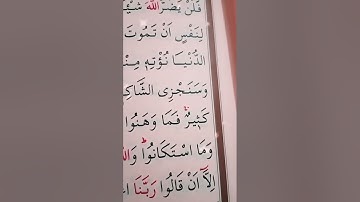 فَلَنْ يَضُرَّ اللّٰهَ شَيْـٔ
لِنَفْسٍ اَنْ تَمُوتَ
الدُّنْيَا نُؤْتِه۪ مِنْ
وَسَنَجْزِي الشَّاكِر
كَث۪يرٌۚ فَمَا وَهَنُوا
وَمَا اسْتَكَانُواۜ وَاللّٰ
اِلَّٓا اَنْ قَالُوا رَبَّنَا